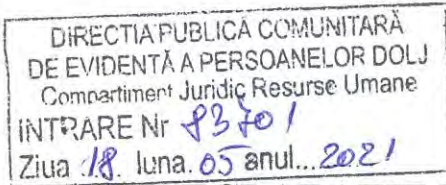 DIRECTIA PUBLICĂ COMUNITARĂ
DE EVIDENȚĂ A PERSOANELOR DOLJ
Compartiment Juridic Resurse Umane
INTRARE Nr 83701
Ziua 18. luna. 05 anul... 2021